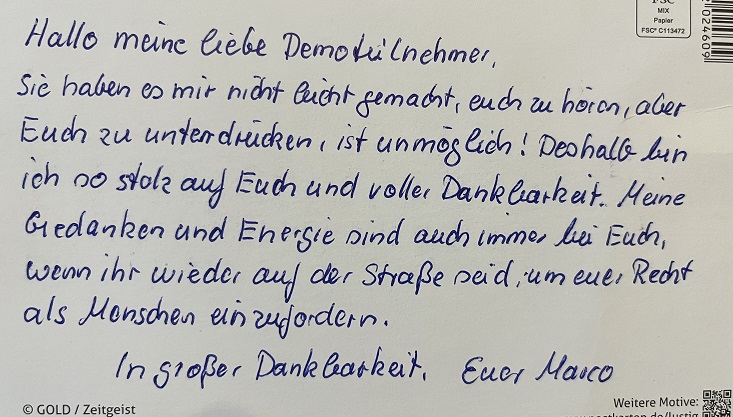 FSC
MIX
Papier
FSC® C113472
024609
Hallo meine liebe Demoteilnehmer,
Sie haben es mir nicht leicht gemacht, euch zu hören, aber
Euch zu unterdrücken, ist unmöglich! Deshalb bin
ich so stolz auf Euch und voller Dankbarkeit. Meine
Gedanken und Energie sind auch immer bei Euch,
wenn ihr wieder auf der Straße seid, um euer Recht
als Menschen einzufordern.
In großer Dankbarkeit. Euer Marco
© GOLD / Zeitgeist
Weitere Motive:
postkarten.de/lustig